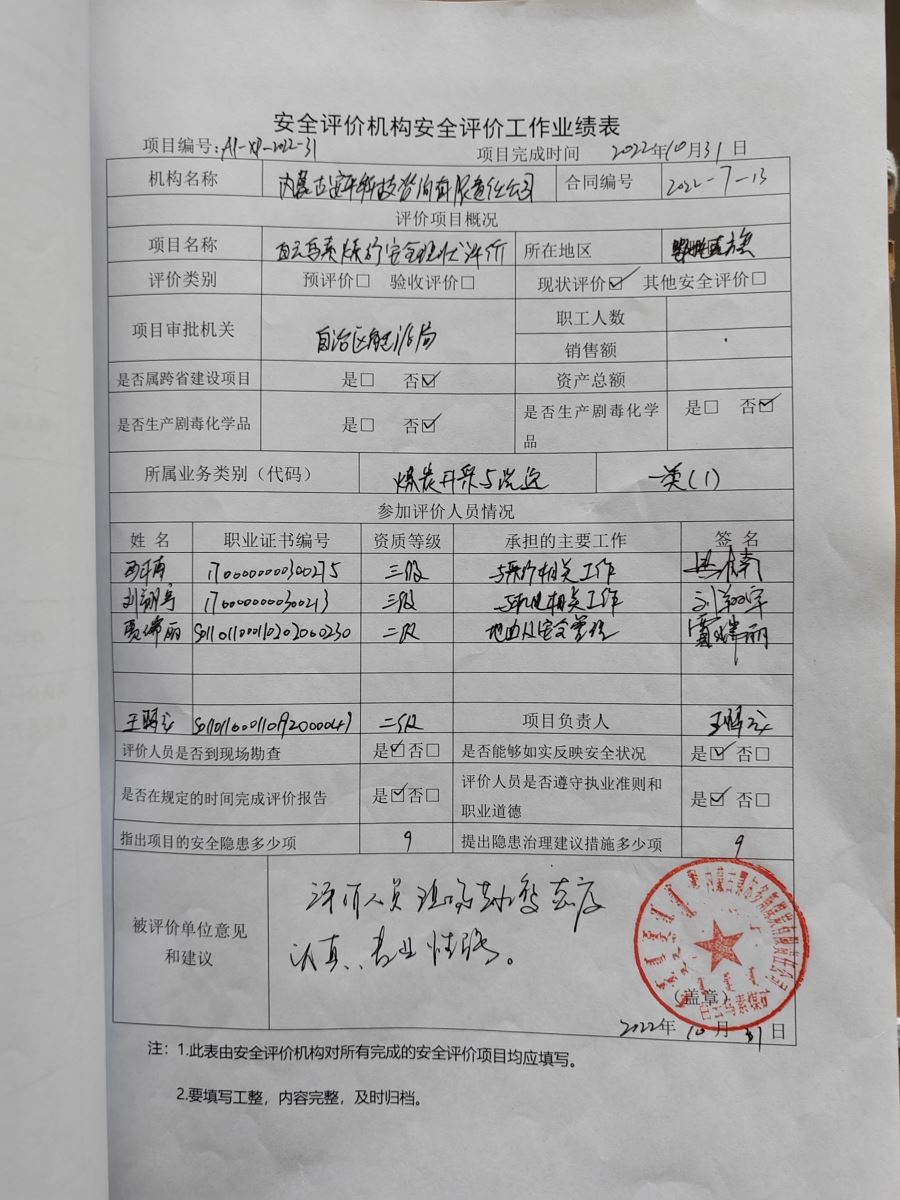 安全评价机构安全评价工作业绩表
项目编号：AP-XP-2022-31 项目完成时间 2022年10月31日
机构名称 内蒙古安平科技咨询有限责任公司 合同编号 2022-7-13
评价项目概况
项目名称 白云乌素煤矿安全现状评价 所在地区
评价类别 预评价□ 验收评价□ 现状评价☑ 其他安全评价□
项目审批机关 自治区能源局 职工人数
销售额
是否属跨省建设项目 是□ 否☑ 资产总额
是否生产剧毒化学品 是□ 否☑ 是否生产剧毒化学品 是□ 否☑
所属业务类别（代码） 煤炭开采与洗选 一类(1)
参加评价人员情况
姓名 职业证书编号 资质等级 承担的主要工作 签名
1700000000300275 三级 与采矿相关工作
刘翔宇 170000000030213 三级 与机电相关工作 刘翔宇
贾伟丽 S011011000110202000230 二级 地质及安全管理 贾伟丽
S011011000110192000047 二级 项目负责人
评价人员是否到现场勘查 是☑否□ 是否能够如实反映安全状况 是☑ 否□
是否在规定的时间完成评价报告 是☑否□ 评价人员是否遵守执业准则和职业道德 是☑ 否□
指出项目的安全隐患多少项 9 提出隐患治理建议措施多少项 9
被评价单位意见和建议
评价人员 态度
认真、专业性强。
（盖章）
2022年10月31日
注：1.此表由安全评价机构对所有完成的安全评价项目均应填写。
2.要填写工整，内容完整，及时归档。